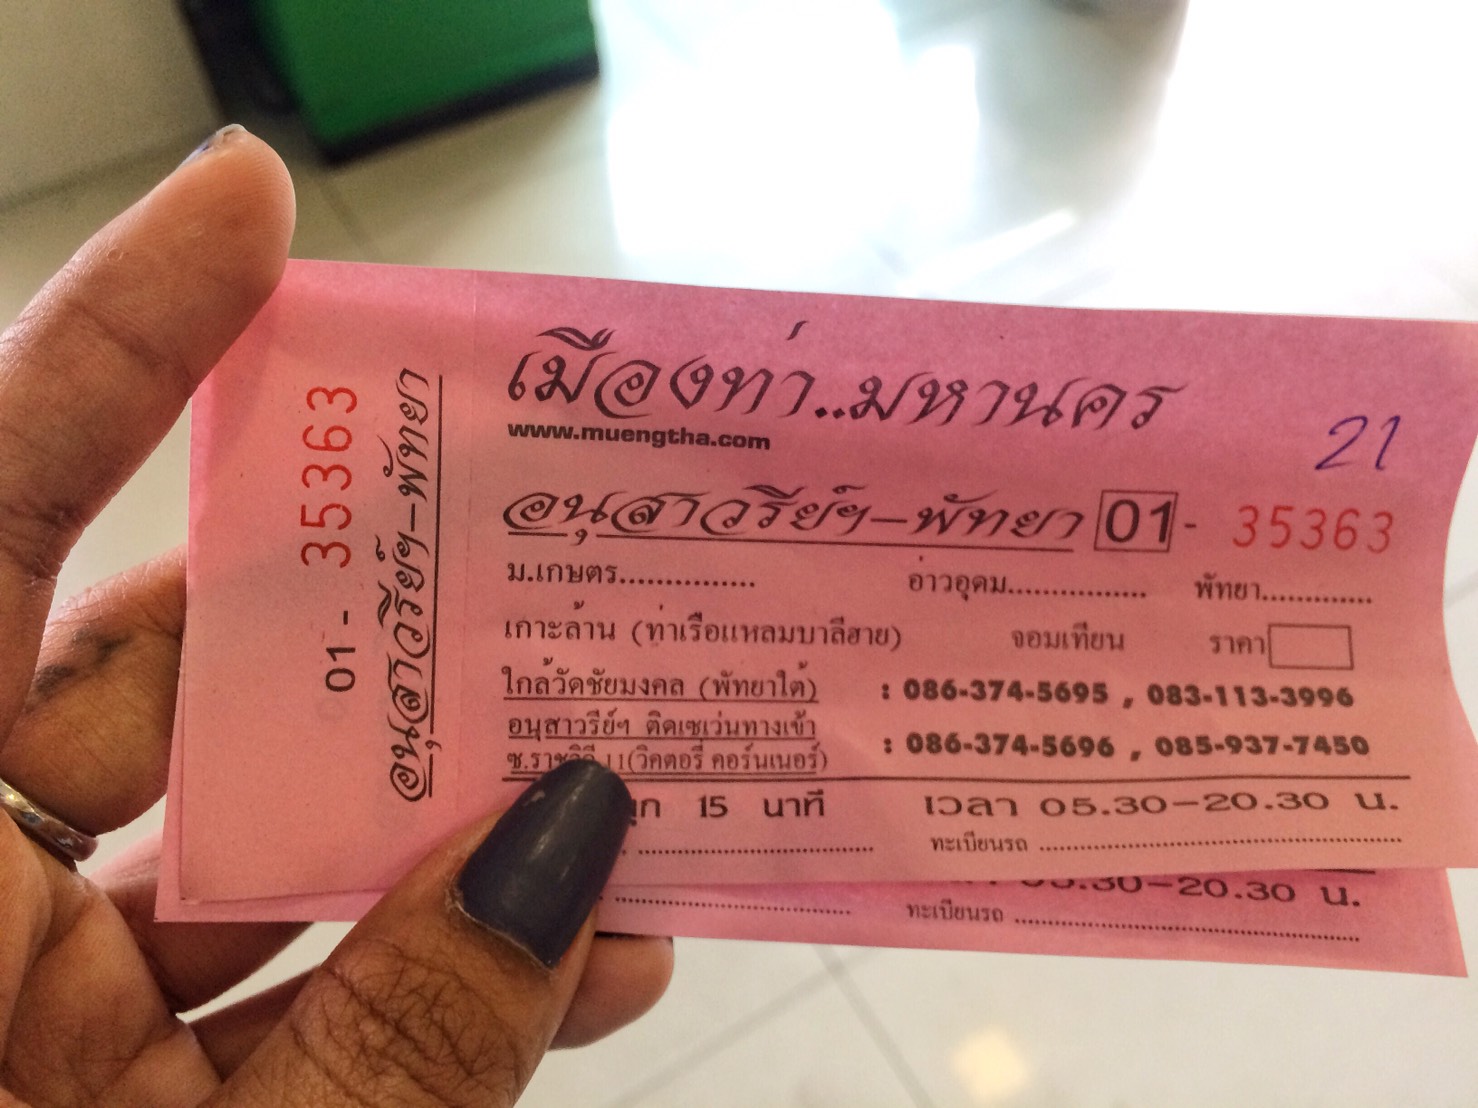 01 - 35363
อนุสาวรีย์ฯ-พัทยา
เมืองท่า..มหานคร
www.muengtha.com
21
อนุสาวรีย์ฯ-พัทยา 01 - 35363
ม.เกษตร............... อ่าวอุดม............... พัทยา............
เกาะล้าน (ท่าเรือแหลมบาลีฮาย) จอมเทียน ราคา
ใกล้วัดชัยมงคล (พัทยาใต้) : 086-374-5695 , 083-113-3996
อนุสาวรีย์ฯ ติดเซเว่นทางเข้า
ซ.ราชวิถี 11(วิคตอรี่ คอร์นเนอร์) : 086-374-5696 , 085-937-7450
15 นาที เวลา 05.30-20.30 น.
ทะเบียนรถ
05.30-20.30 น.
ทะเบียนรถ